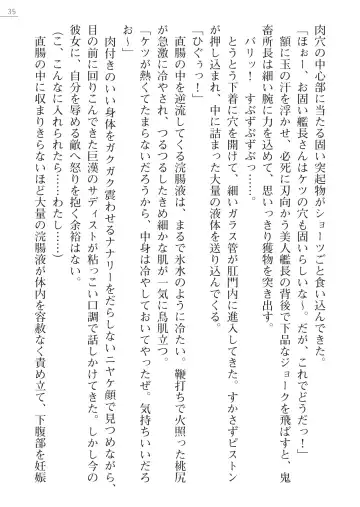 35
肉穴の中心部に当たる固い突起物がショーツごと食い込んできた。
「ほぉー、お固い艦長さんはケツの穴も固いらしいな〜。だが、これでどうだっ！」
額に玉の汗を浮かせ、必死に刃向かう美人艦長の背後で下品なジョークを飛ばすと、鬼
畜所長は細い腕に力を込めて、思いっきり獲物を突き出す。
バリッ！　すぷずぷずぷっ…………。
とうとう下着に穴を開けて、細いガラス管が肛門内に進入してきた。すかさずピストン
が押し込まれ、中に詰まった大量の液体を送り込んでくる。
「ひぐぅっ！」
直腸の中を逆流してくる浣腸液は、まるで氷水のように冷たい。鞭打ちで火照った桃尻
が急激に冷やされ、つるつるしたきめ細かな肌が一気に鳥肌立つ。
「ケツが熱くてたまらないだろうから、中身は冷やしておいてやったぜ。気持ちいいだろ
お〜」
肉付きのいい身体をガクガク震わせるナナリーをだらしないニヤケ顔で見つめながら、
目の前に回りこんできた巨漢のサディストが粘っこい口調で話しかけてきた。しかし今の
彼女に、自分を辱める敵へ怒りを抱く余裕はない。
（こ、こんなに入れられたら……わたし……）
直腸の中に収まりきらないほど大量の浣腸液が体内を容赦なく責め立て、下腹部を妊娠